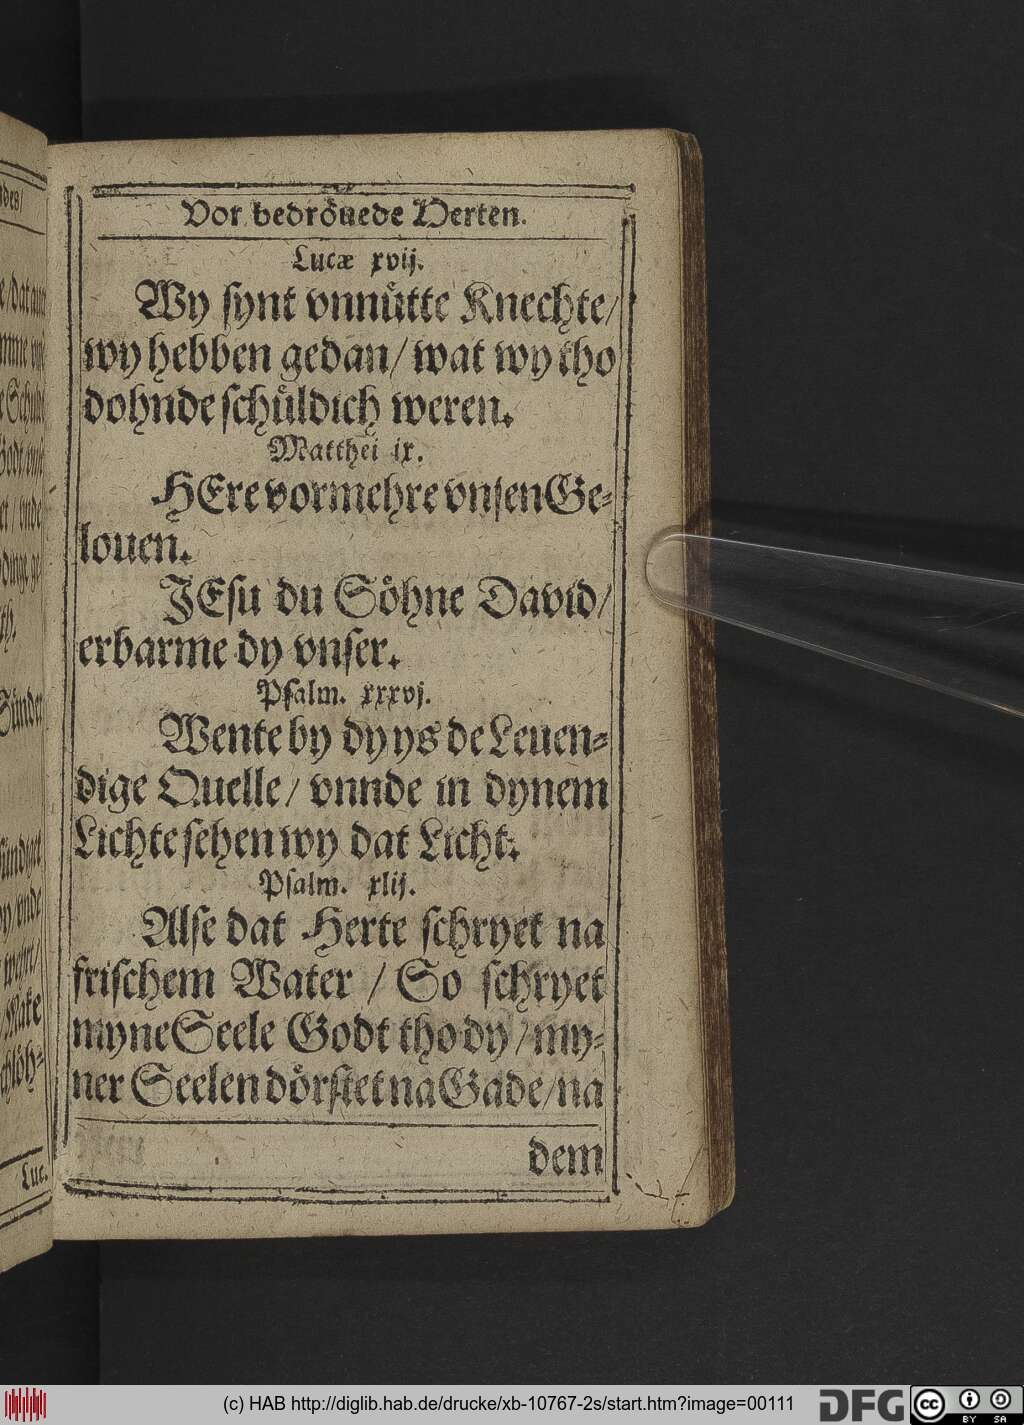 Vor bedroͤuede Herten.
Lucæ xvij.
Wy synt vnnuͤtte Knechte/
wy hebben gedan/ wat wy tho
dohnde schuͤldich weren.
Matthei ix.
HEre vormehre vnsen Ge-
louen.
JEsu du Soͤhne David/
erbarme dy vnser.
Psalm. xxxvj.
Wente by dy ys de Leuen-
dige Quelle/ vnnde in dynem
Lichte sehen wy dat Licht.
Psalm. xlij.
Alse dat Herte schryet na
frischem Water / So schryet
myne Seele Godt tho dy / my-
ner Seelen doͤrstet na Gade/ na
dem
Luc.
(c) HAB http://diglib.hab.de/drucke/xb-10767-2s/start.htm?image=00111
DFG
cc
BY SA